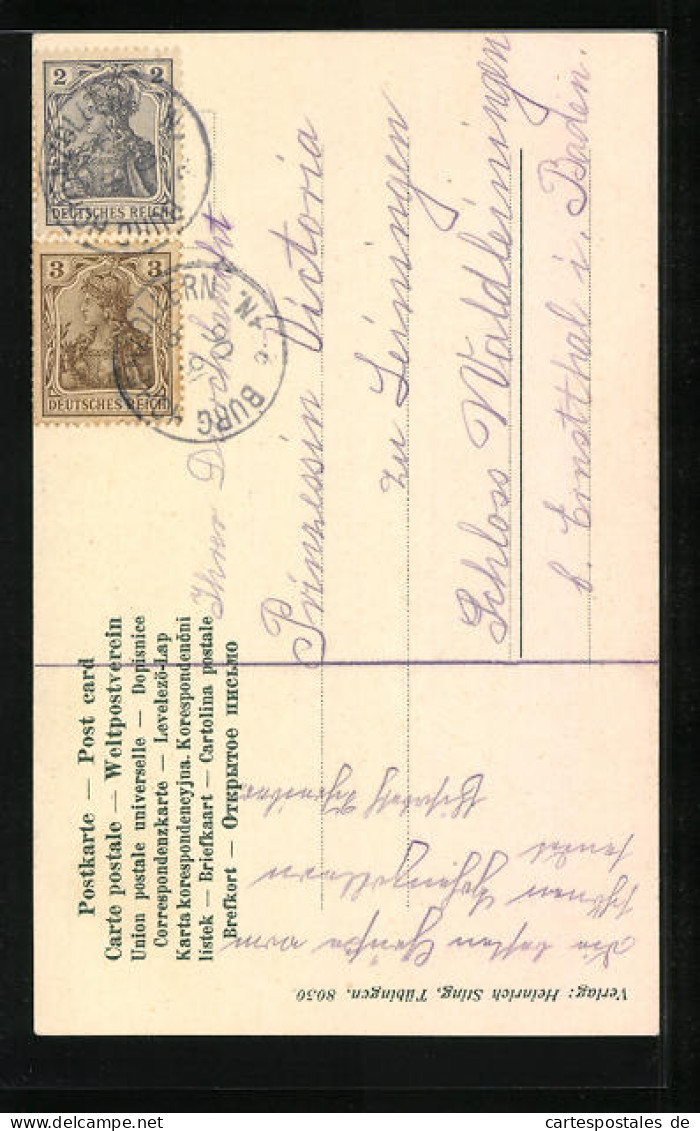 Postkarte — Post card
Carte postale — Weltpostverein
Union postale universelle — Dopisnice
Correspondenzkarte — Levelező-Lap
Karta korespondencyjna. Korespondenční
listek — Briefkaart — Cartolina postale
Brefkort — Открытое письмо
2 2
DEUTSCHES REICH
3 3
DEUTSCHES REICH
BURG HOHENZOLLERN
BURG
Ihrer Durchlaucht
Prinzessin Victoria
zu Leiningen
Schloss Waldleiningen
b. Ernstthal i. Baden.
Die besten Grüße vom
schönen Hohenzollern
sendet
Verlag: Heinrich Sting, Tübingen. 8050
www.delcampe.net
cartespostales de